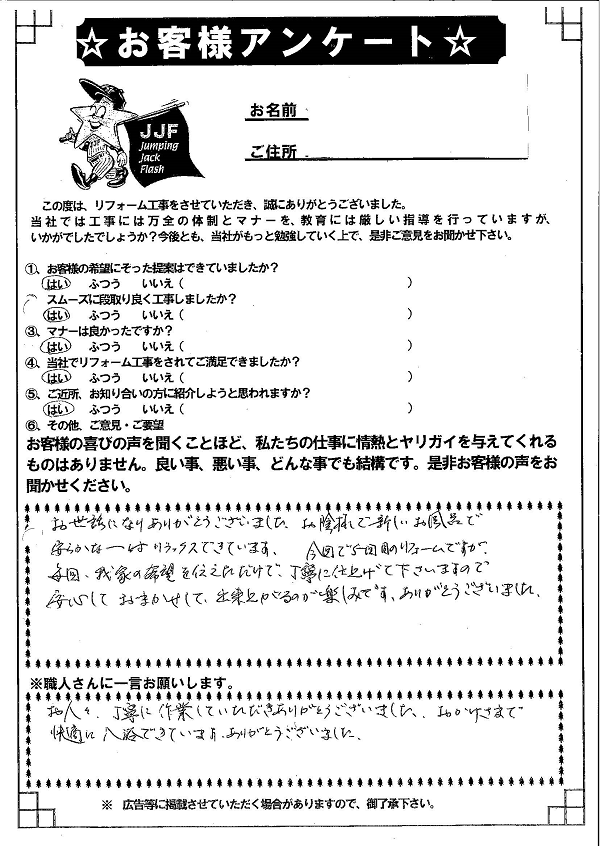 ☆お客様アンケート☆
JJF
Jumping
Jack
Flash
お名前
ご住所
この度は、リフォーム工事をさせていただき、誠にありがとうございました。
当社では工事には万全の体制とマナーを、教育には厳しい指導を行っていますが、
いかがでしたでしょうか?今後とも、当社がもっと勉強していく上で、是非ご意見をお聞かせ下さい。
①、お客様の希望にそった提案はできていましたか?
はい ふつう いいえ( )
スムーズに段取り良く工事しましたか?
はい ふつう いいえ( )
③、マナーは良かったですか?
はい ふつう いいえ( )
④、当社でリフォーム工事をされてご満足できましたか?
はい ふつう いいえ( )
⑤、ご近所、お知り合いの方に紹介しようと思われますか?
はい ふつう いいえ( )
⑥、その他、ご意見・ご要望
お客様の喜びの声を聞くことほど、私たちの仕事に情熱とヤリガイを与えてくれる
ものはありません。良い事、悪い事、どんな事でも結構です。是非お客様の声をお
聞かせください。
お世話になりありがとうございました。お陰様で新しいお風呂で
リラックスできています。 今回で5回目のリフォームですが、
毎回、我家の希望を伝えただけで、丁寧に仕上げて下さいますので
安心しておまかせして、出来上がるのが楽しみです。ありがとうございました。
※職人さんに一言お願いします。
丁寧に作業していただきありがとうございました。おかげさまで
快適に入浴できています。ありがとうございました。
※ 広告等に掲載させていただく場合がありますので、御了承下さい。